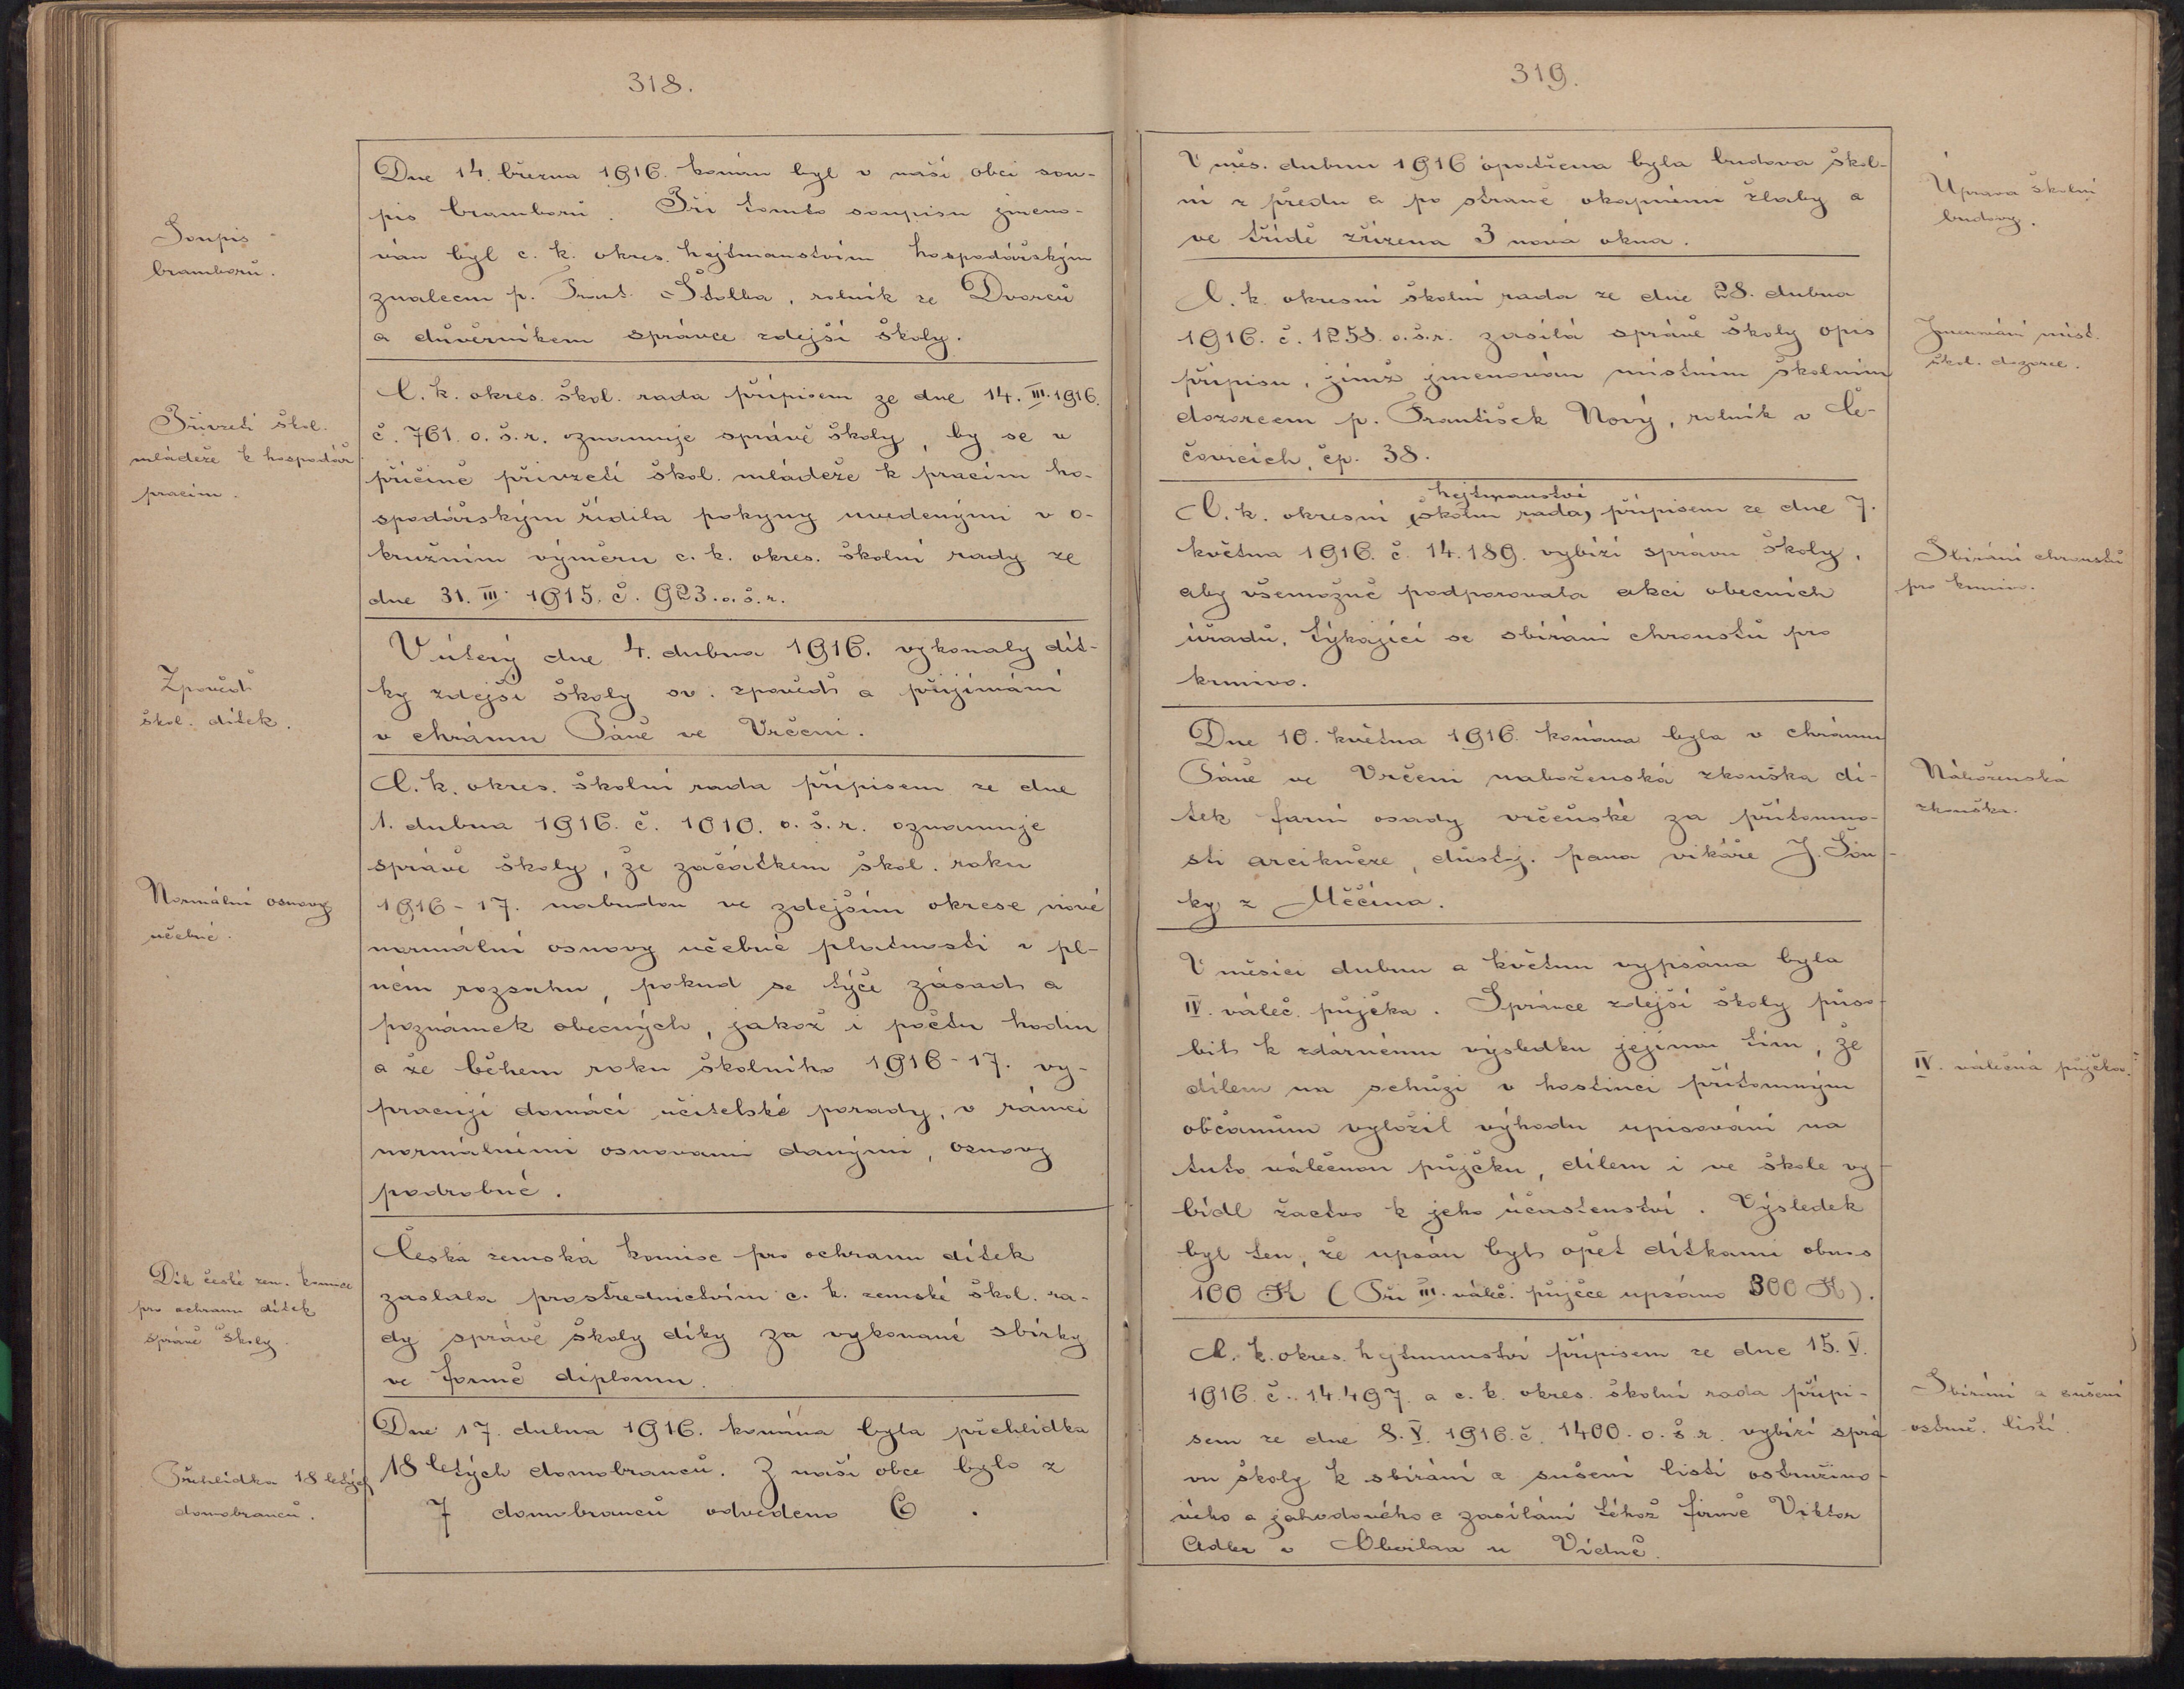 318.
Soupis
bramborů.
Dne 14. března 1916. konán byl v naší obci sou-
pis bramborů. Při tomto soupisu jmeno-
ván byl c. k. okres. hejtmanstvím hospodářským
znalcem p. Frant. Štolba, rolník ze Dvorců
a důvěrníkem správce zdejší školy.
Přivzetí škol.
mládeže k hospodář.
pracím.
C. k. okres. škol. rada přípisem ze dne 14. III. 1916.
č. 761. o. š. r. oznamuje správě školy, by se v
příčině přivzetí škol. mládeže k pracím ho-
spodářským řídila pokyny uvedenými v o-
kružním výměru c. k. okres. školní rady ze
dne 31. III. 1915. č. 923. o. š. r.
Zpověď
škol. dítek.
V úterý dne 4. dubna 1916. vykonaly dít-
ky zdejší školy sv. zpověď a přijímání
v chrámu Páně ve Vrčeni.
Normální osnovy
učebné.
C. k. okres. školní rada přípisem ze dne
1. dubna 1916. č. 1010. o. š. r. oznamuje
správě školy, že začátkem škol. roku
1916-17. nabudou ve zdejším okrese nové
normální osnovy učebné platnosti v pl-
ném rozsahu, pokud se týče zásad a
poznámek obecných, jakož i počtu hodin
a že během roku školního 1916-17. vy-
pracují domácí učitelské porady, v rámci
normálními osnovami daným, osnovy
podrobné.
Dík české zem. komise
pro ochranu dítek
správě školy.
Česká zemská komise pro ochranu dítek
zaslala prostřednictvím c. k. zemské škol. ra-
dy správě školy díky za vykonané sbírky
ve formě diplomu.
Přehlídka 18 letých
domobranců.
Dne 17. dubna 1916. konána byla přehlídka
18 letých domobranců. Z naší obce bylo z
7 domobranců odvedeno 6.
319.
V měs. dubnu 1916 opatřena byla budova škol-
ní z předu a po straně okapními žlaby a
ve třídě zřízena 3 nová okna.
Úprava školní
budovy.
C. k. okresní školní rada ze dne 28. dubna
1916. č. 1258. o. š. r. zasílá správě školy opis
přípisu, jímž jmenován místním školním
dozorcem p. František Nový, rolník v Če-
čovicích, čp. 38.
Jmenování míst.
škol. dozorce.
hejtmanství
C. k. okresní (školní rada) přípisem ze dne 7.
května 1916. č. 14.189. vybízí správu školy,
aby všemožně podporovala akci obecních
úřadů, týkající se sbírání chroustů pro
krmivo.
Sbírání chroustů
pro krmivo.
Dne 10. května 1916. konána byla v chrámu
Páně ve Vrčeni naboženská zkouška dí-
tek farní osady vrčeňské za přítomno-
sti arcikněze, důstoj. pana vikáře J.
ky z Měčína.
Náboženská
zkouška.
V měsíci dubnu a květnu vypsána byla
IV. váleč. půjčka. Správce zdejší školy půso-
bil k zdárnému výsledku jejímu tím, že
dílem na schůzi v hostinci přítomným
občanům vyložil výhodu upisování na
tuto válečnou půjčku, dílem i ve škole vy-
bídl žactvo k jeho účastenství. Výsledek
byl ten, že upsán byl opět dítkami obnos
100 K (Při III. váleč. půjčce upsáno 300 K).
IV. válečná půjčka.
C. k. okres. hejtmanství přípisem ze dne 15. V.
1916. č. 14.497. a c. k. okres. školní rada přípi-
sem ze dne 8. V. 1916. č. 1400. o. š. r. vybízí sprá
vu školy k sbírání a sušení listí ostružino-
vého a jahodového a zasílání téhož firmě Viktor
Adler v u Vídně.
Sbírání a sušení
ostruž. listí.